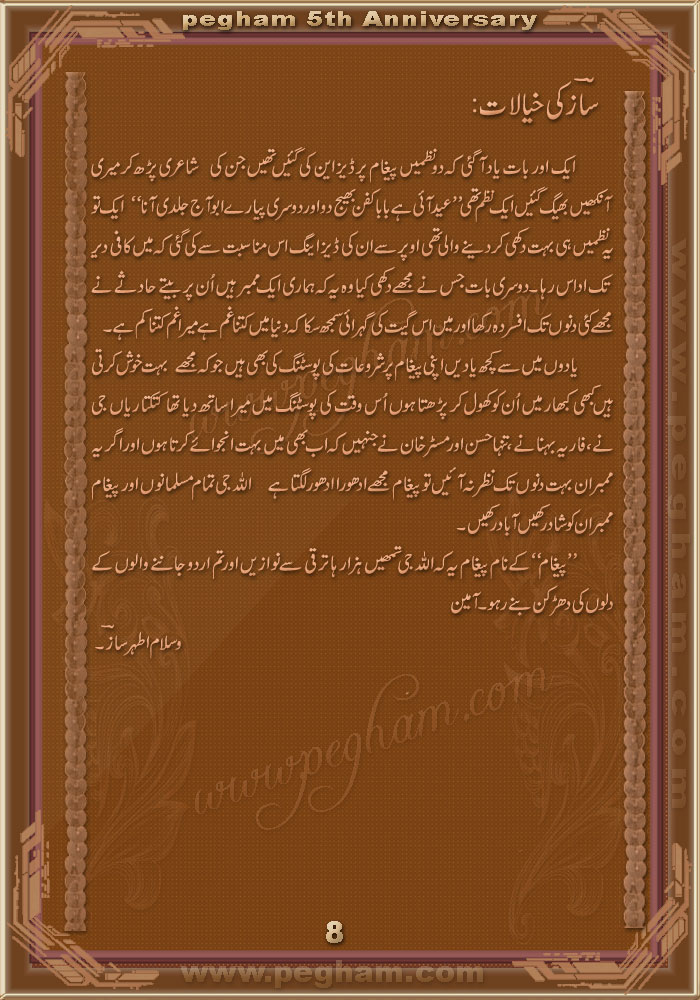 pegham 5th Anniversary
سازؔ کی خیالات:
ایک اور بات یاد آ گئی کہ دو نظمیں پیغام پر ڈیزاین کی گئیں تھیں جن کی شاعری پڑھ کر میری
آنکھیں بھیگ گئیں ایک نظم تھی ’’عید آئی ہے بابا کفن بھیج دو اور دوسری پیارے ابو آج جلدی آنا‘‘ ایک تو
یہ نظمیں ہی بہت دکھی کر دینے والی تھی اوپر سے ان کی ڈیزاینگ اس مناسبت سے کی گئی کہ میں کافی دیر
تک اداس رہا۔ دوسری بات جس نے مجھے دکھی کیا وہ یہ کہ ہماری ایک ممبر ہیں اُن پر بیتے حادثے نے
مجھے کئی دنوں تک افسردہ رکھا اور میں اس گیت کی گہرائی سمجھ سکا کہ دنیا میں کتنا غم ہے میرا غم کتنا کم ہے۔
یادوں میں سے کچھ یادیں اپنی پیغام پر شروعات کی پوسٹنگ کی بھی ہیں جو کہ مجھے بہت خوش کرتی
ہیں کبھی کبھار میں اُن کو کھول کر پڑھتا ہوں اُس وقت کی پوسٹنگ میں میرا ساتھ دیا تھا کتکتاریاں جی
نے، فاریہ بہنا نے، تنہا حسن اور مسٹر خان نے جنہیں کہ اب بھی میں بہت انجوائے کرتا ہوں اور اگر یہ
ممبران بہت دنوں تک نظر نہ آئیں تو پیغام مجھے ادھورا ادھورا لگتا ہے اللہ جی تمام مسلمانوں اور پیغام
ممبران کو شاد رکھیں آباد رکھیں۔
’’پیغام‘‘ کے نام پیغام یہ کہ اللہ جی تمھیں ہزار ہا ترقی سے نوازیں اور تم اردو جاننے والوں کے
دلوں کی دھڑکن بنے رہو۔ آمین
وسلام اطہر سازؔ۔
www.pegham.com
www.pegham.com
www.pegham.com
8
www.pegham.com